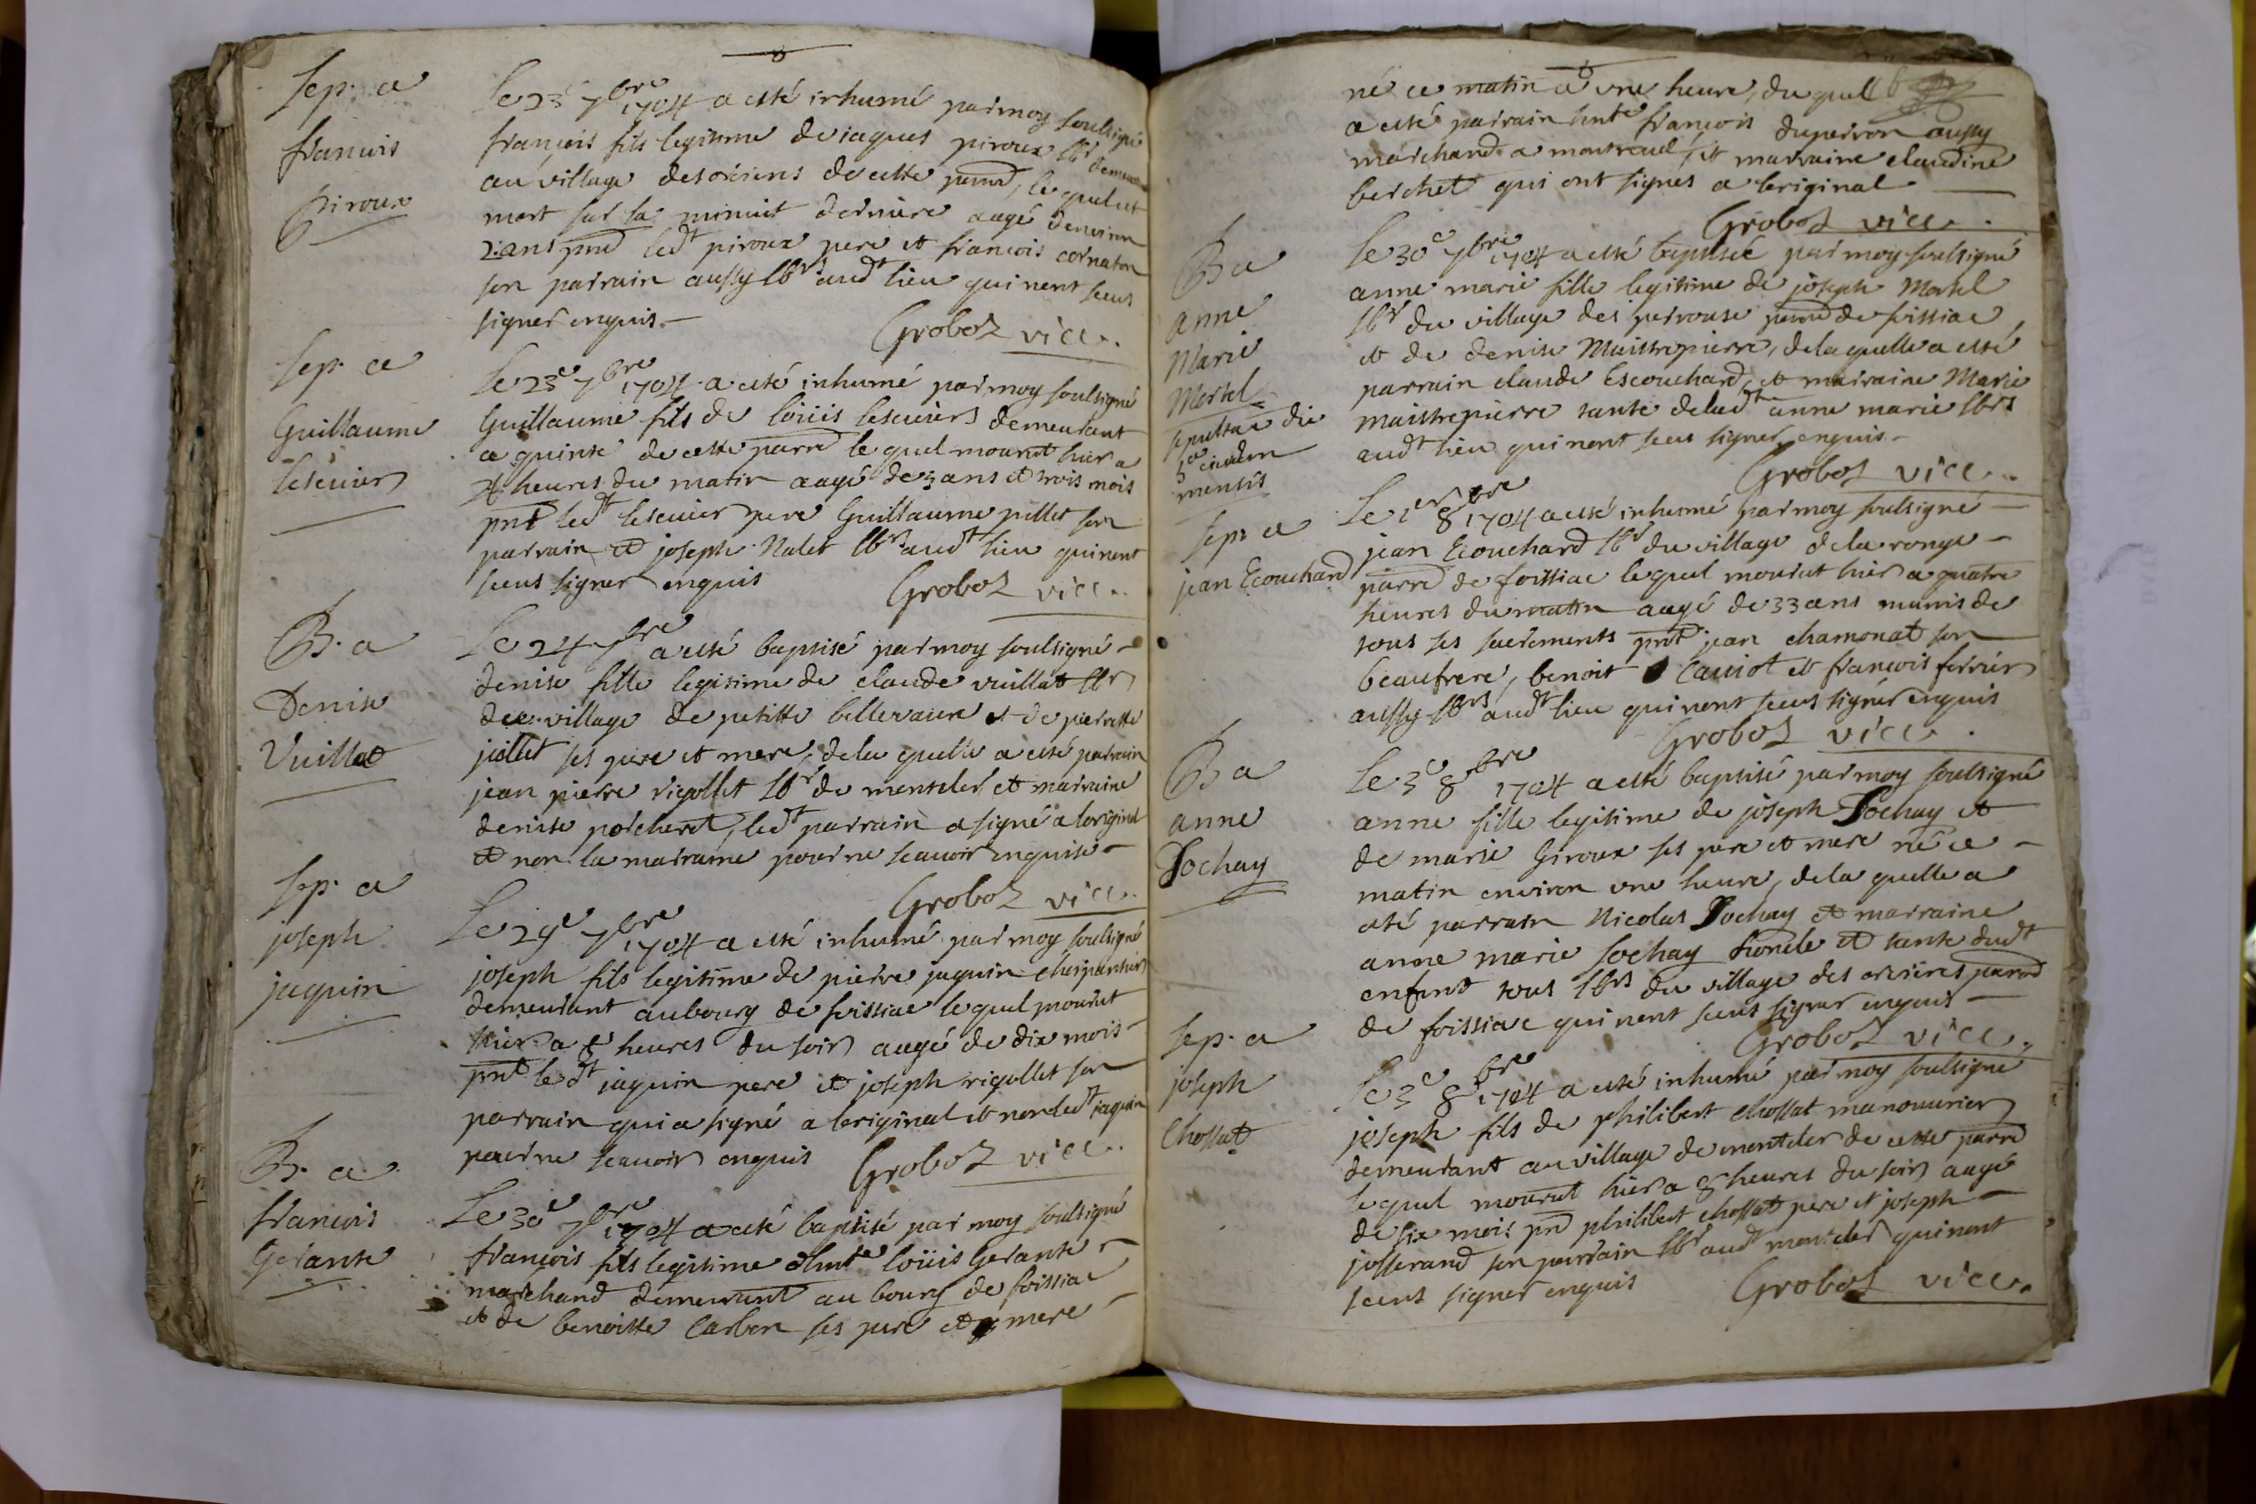 Sep. a
francois
Piroux
Le 23e 7bre 1704 a esté inhumé par moy soubsigné
françois fils legitime de iaques piroux lbr demeurant
au village des orisiens de cette parr, lequel est
mort sur la minuit derniere aagé denviron
2. ans pnt ledt piroux pere et francois cornaton
son parrain aussy lbrs audt lieu qui nont sceus
signer enquis.
Groboz vice.
Sep. a
Guillaume
lescuier
Le 23e 7bre 1704 a esté inhumé par moy soubsigné
Guillaume fils de loüis lescuiers demeurant
a quinte de cette parre lequel mourut hier a
4 heures du matin aagé de 3 ans et trois mois
pnt ledt lescuier pere Guillaume pillet son
parrain et joseph Nalet lbrs audt lieu qui nont
sceus signer enquis
Groboz vice.
B. a
Denise
Vuillat
Le 24 7bre a esté baptisé par moy soubsigné
denise fille legitime de claude vuillat lbr
du village de petitte bellevaure et de pierrette
jullet ses pere et mere, de la quelle a esté parrain
jean pierre rigollet lbr de montcler et marraine
denise porcheret, ledt parrain a signé a loriginal
et non la marraine pour ne scauoir enquise
Groboz vice.
Sep. a
joseph
jaquin
Le 29e 7bre 1704 a esté inhumé par moy soubsigné
joseph fils legitime de pierre jaquin charpantier
demeurant au bourg de foissiac lequel mourut
hier a 8 heures du soir aagé de dix mois
pnt le dt jaquin pere et joseph rigollet son
parrain qui a signé a loriginal et non ledt jaquin
pour ne scauoir enquis
Groboz vice.
B. a
francois
Gerante
Le 30e 7bre 1704 a esté baptisé par moy soubsigné
françois fils legitime dhnte loüis Gerante
marchand demeurant au bourg de foissiac
et de benoitte Carbon ses pere et mere
né ce matin a une heure, du quel
a esté parrain hnte francois duperron aussy
marchand a montreuel, et marraine claudine
berchet qui ont signés a loriginal
Groboz vice.
B a
anne
Marie
Mortel
sepulta die
5a eiusdem
mensis
Le 30e 7bre 1704 a esté baptisée par moy soubsigné
anne marie fille legitime de joseph Mortel
lbr du village des perrouse parr de foissiac
et de denise Maistrepierre, de la quelle a esté
parrain claude Escouchard, et marraine Marie
maistrepierre tante de ladt anne marie lbrs
audt lieu qui nont sceu signer enquis
Groboz vice.
Sep. a
jean Ecouchard
Le 1er 8bre 1704 a esté inhumé par moy soubsigné
jean Ecouchard lbr du village de la ronge
parre de foissiac lequel mourut hier a quatre
heures du matin aagé de 33 ans munis de
tous ses sacrements pnt jean chamonat son
beaufrere, benoit Cauiot et françois ferrier
aussy lbrs audt lieu qui nont sceus signer enquis
Groboz vice.
B a
anne
Sochay
Le 3e 8bre 1704 a esté baptisé par moy soubsigné
anne fille legitime de joseph Sochay et
de marie Giroux ses pere et mere né ce
matin environ une heure, de la quelle a
esté parrain Nicolas Sochay et marraine
anne marie Sochay lioncle et tante dudt
enfant tous lbrs du village des orisieres parr
de foissiac qui nont sceus signer enquis
Groboz vice.
Sep. a
joseph
Chossat
Le 3e 8bre 1704 a esté inhumé par moy soubsigné
joseph fils de philibert chossat manouurier
demeurant au village de montcler de cette parre
lequel mourut hier a 8 heures du soir aagé
de six mois pnt philibert chossat pere et joseph
josserand son parrain lbr audt montcler qui nont
sceus signer enquis
Groboz vice.